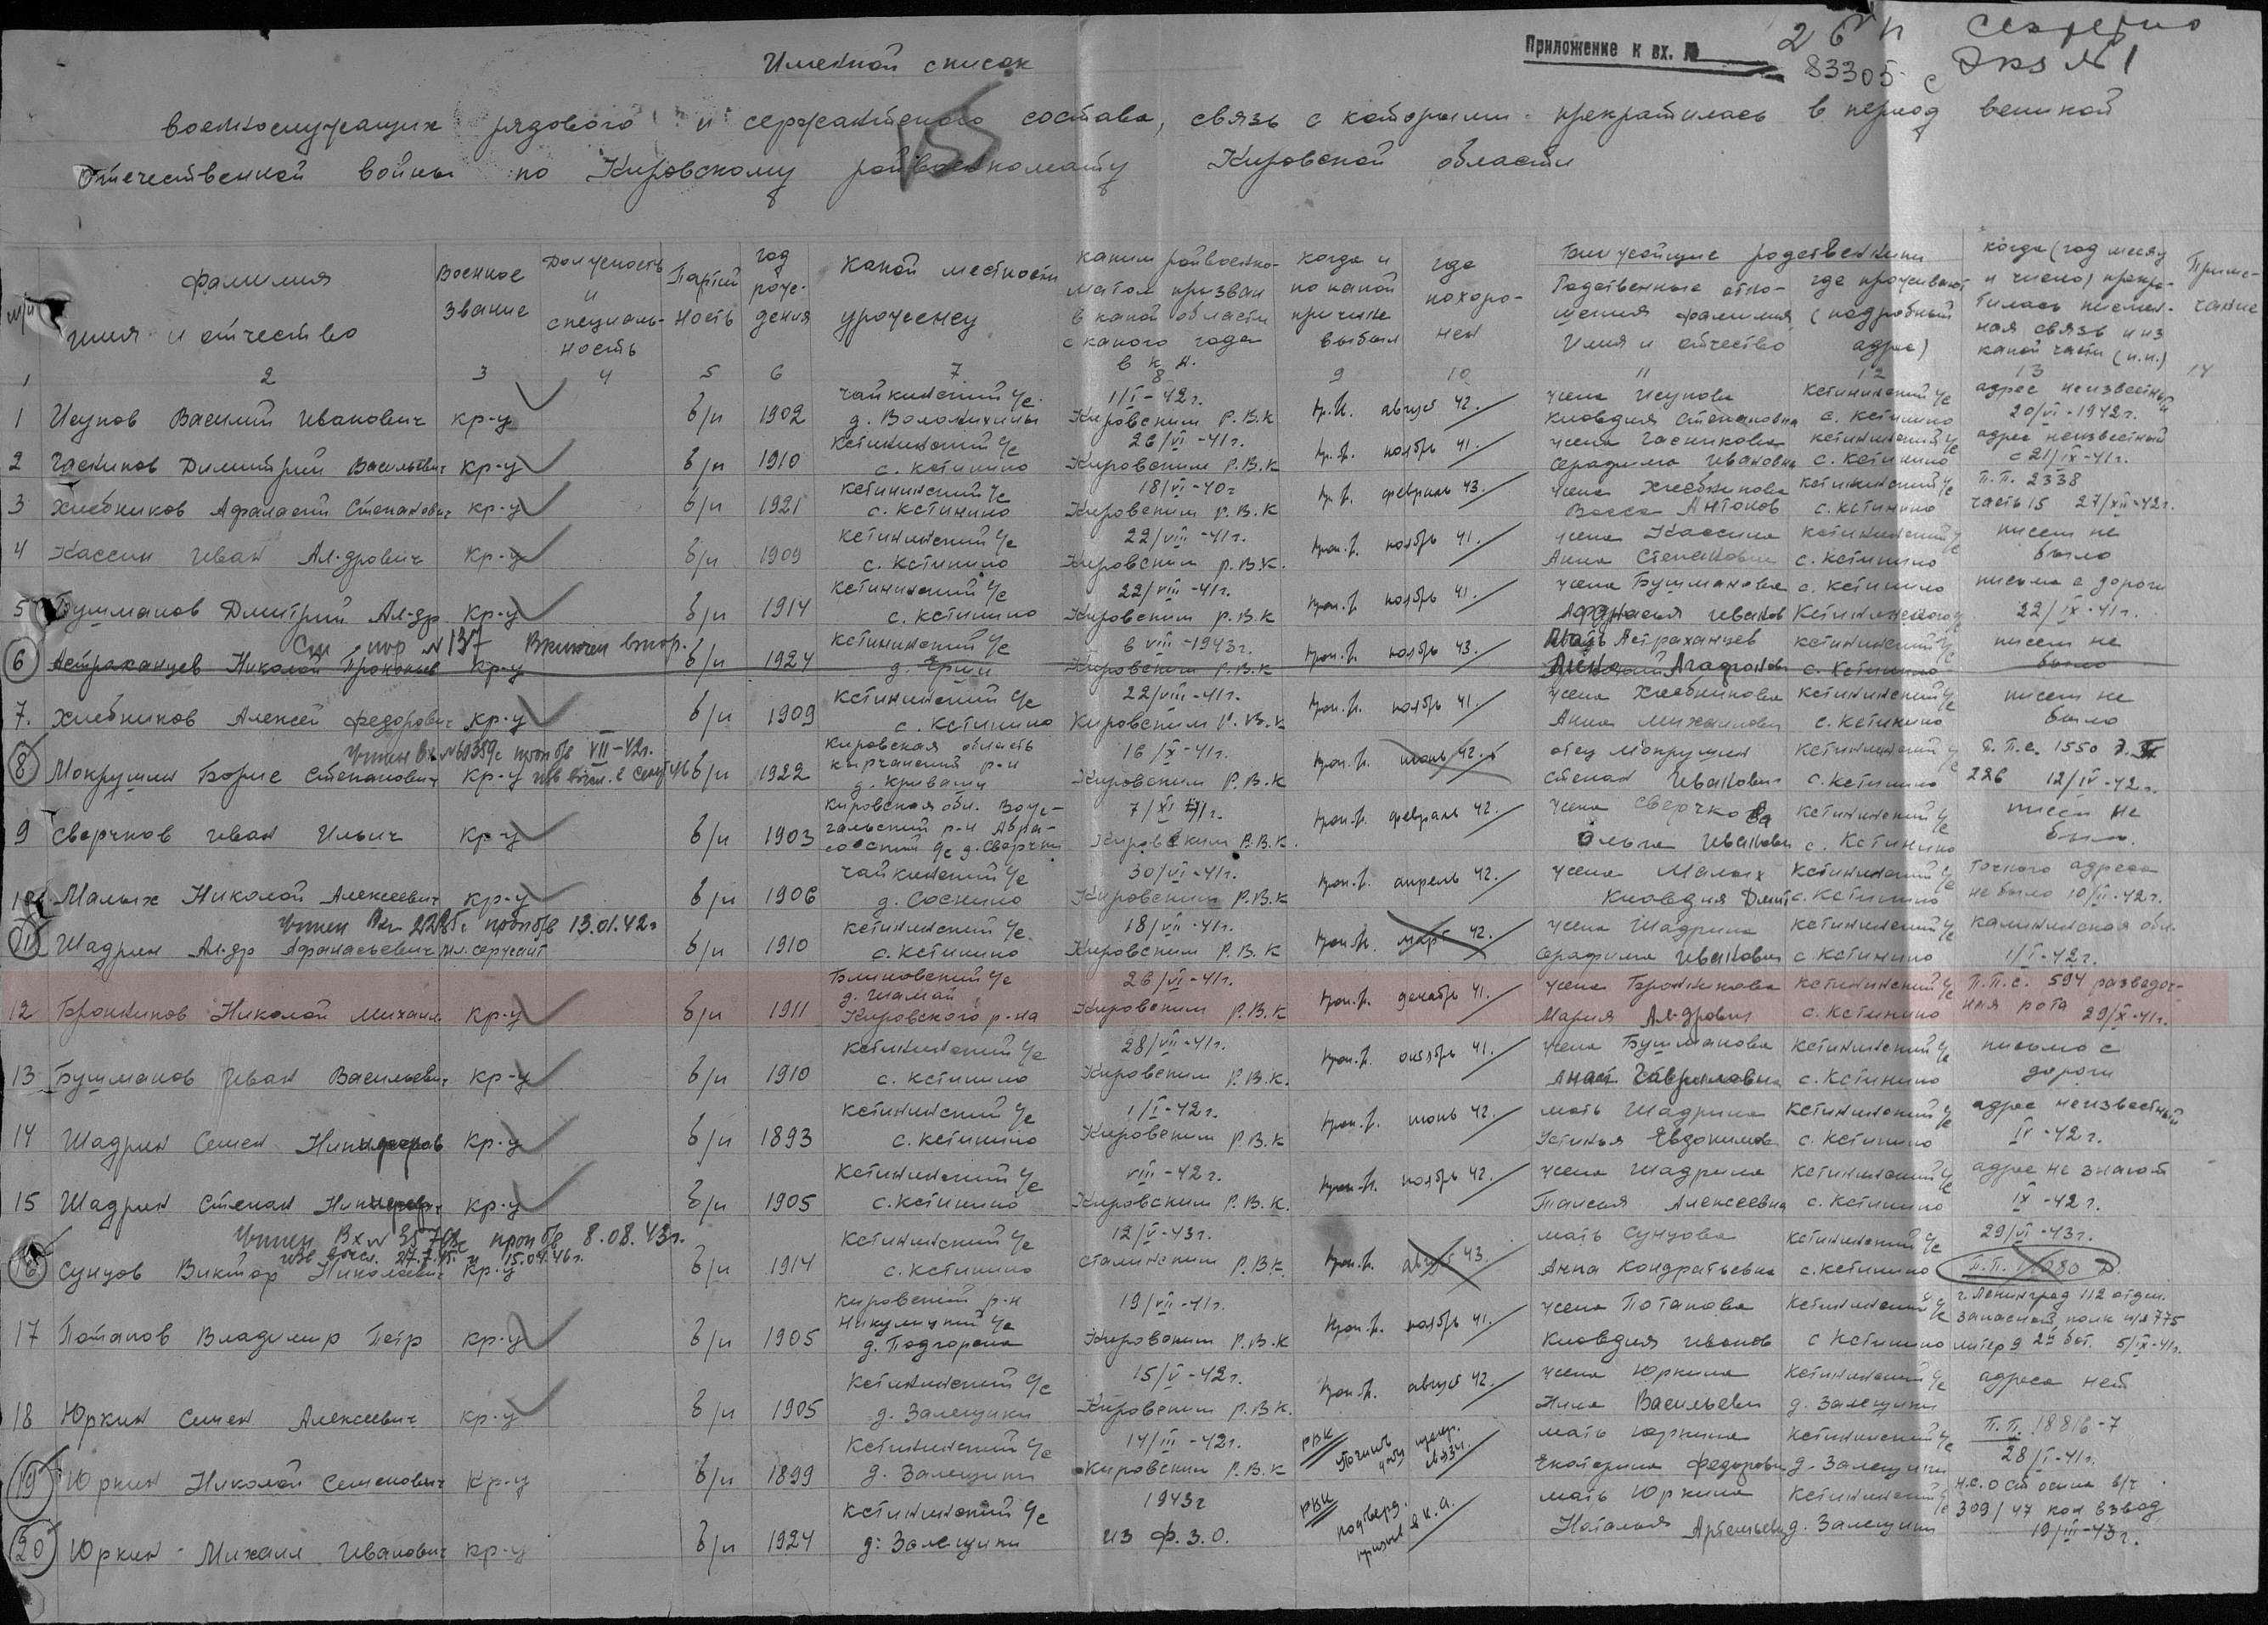 Приложение к вх. №
26 п секретно
83305 с Экз №1
Именной список
военнослужащих рядового и сержантского состава, связь с которыми прекратилась в период великой
отечественной войны по Кировскому райвоенкомату Кировской области
п/п фамилия имя и отчество Военное звание Должность и специальность Партийность год рождения Какой местности уроженец каким райвоенкоматом призван в какой области с какого года в К.А. когда и по какой причине выбыл где похоронен Ближайшие родственники Родственные отношения фамилия Имя и отчество где проживают (подробный адрес) когда (год месяц и число) прекратилась письменная связь и из какой части (п.п.) Примечание
1 2 3 4 5 6 7 8 9 10 11 12 13 14
1 Исупов Василий Иванович кр-ц б/п 1902 Чайкинский с/с д. Волонихины 1/I-42г. Кировским Р.В.К пр.п. август 42. жена Исупова Клавдия Степановна Кстининский с/с с. Кстинино адрес неизвестный 20/VI-1942г.
2 Димитрий Васильевич кр-ц б/п 1910 Кстининский с/с с. Кстинино 26/VI-41г. Кировским Р.В.К пр.п. ноябрь 41. жена Серафима Ивановна Кстининский с/с с. Кстинино адрес неизвестный с 21/IX-41г.
3 Хлебников Афанасий Степанович кр-ц б/п 1921 Кстининский с/с с. Кстинино 18/VI-40г Кировским Р.В.К пр.п. февраль 43. жена Хлебникова Васса Антонов Кстининский с/с с. Кстинино П.П. 2338 часть 15 27/XII-42г.
4 Кассин Иван Ал-дрович кр-ц б/п 1909 Кстининский с/с с. Кстинино 22/VIII-41г. Кировским Р.В.К. проп.п. ноябрь 41. жена Кассина Анна Степановна Кстининский с/с с. Кстинино писем не было
5 Бушманов Дмитрий Ал-др кр-ц б/п 1914 Кстининский с/с с. Кстинино 22/VIII-41г. Кировским Р.В.К проп.п. ноябрь 41. жена Бушманова Афанасья Иванов с. Кстинино Кстининского с/с письма с дороги 22/IX-41г.
См пор №137 Включен втор.
6 Астраханцев Николай Прокопьев кр-ц б/п 1924 Кстининский с/с 6 VIII-1943г. Кировским Р.В.К проп.п. ноябрь 43. мать Астраханцев Агафонов Кстининский с/с с. Кстинино писем не было
7. Хлебников Алексей Федорович кр-ц б/п 1909 Кстининский с/с с. Кстинино 22/VIII-41г. Кировским Р.В.К проп.п. ноябрь 41. жена Хлебникова Анна Михайловна Кстининский с/с с. Кстинино писем не было
Учтен Вх. №60359с проп б/в VII-42г.
8 Мокрушин Борис Степанович кр-ц б/п 1922 Кировская область Кырчанский р-н д. Криваши 16/X-41г. Кировским Р.В.К проп.п. июнь 42. отец Мокрушин Степан Иванович Кстининский с/с с. Кстинино П.П.С. 1550 226 12/IV-42г.
9 Сворчков Иван Ильич кр-ц б/п 1903 Кировская обл. Вожгальский р-н с/с 7/XI 41г. Кировским Р.В.К. проп.п. февраль 42. жена Сворчкова Ольга Ивановна Кстининский с/с с. Кстинино писем не было.
10 Малых Николай Алексеевич кр-ц б/п 1906 Чайкинский с/с д. Соснино 30/VI-41г. Кировским Р.В.К проп.п. апрель 42. жена Малых Клавдия Дмит Кстининский с/с с. Кстинино точного адреса не было 10/II-42г.
Учтен Вх 2285с проп б/в 13.01.42г
11 Шадрин Ал-др Афанасьевич мл. сержант б/п 1910 Кстининский с/с. с. Кстинино 18/VII-41г. Кировским Р.В.К проп.п. март 42. жена Шадрина Серафима Ивановна Кстининский с/с с. Кстинино калининская обл. 1/I-42г.
12 Бронников Николай Михаил кр-ц б/п 1911 Блиновский с/с д. Шамай Кировского р-на 26/VI-41г. Кировским Р.В.К проп.п. декабрь 41. жена Бронникова Мария Ал-дровна Кстининский с/с с. Кстинино П.П.С. 594 разведочная рота 29/X-41г.
13 Бушманов Иван Васильевич кр-ц б/п 1910 Кстининский с/с с. Кстинино 28/VII-41г. Кировским Р.В.К. проп.п. октябрь 41. жена Бушманова Анас Гавриловна Кстининский с/с с. Кстинино письмо с дороги
14 Шадрин Семен Никифоров кр-ц б/п 1893 Кстининский с/с с. Кстинино 1/I-42г. Кировским Р.В.К проп.п. июнь 42. мать Шадрина Устинья Евдокимовн Кстининский с/с с. Кстинино адрес неизвестный IV-42г.
15 Шадрин Степан кр-ц б/п 1905 Кстининский с/с с. Кстинино VIII-42г. Кировским Р.В.К. проп.п. ноябрь 42. жена Шадрина Таисья Алексеевна Кстининский с/с с. Кстинино адрес не знают IX-42г.
Учтен Вх № проп б/в 8.08.43г.
15.04.46г.
16 Сунцов Виктор Николаевич кр-ц б/п 1914 Кстининский с/с с. Кстинино 12/V-43г. Сталинским Р.В.К. проп.п. август 43. мать Сунцова Анна Кондратьевна Кстининский с/с с. Кстинино 29/VI-43г.
17 Потапов Владимир Петр кр-ц б/п 1905 Кировский р-н Никулицкий с/с д. Подгорена 19/VII-41г. Кировским Р.В.К проп.п. ноябрь 41. жена Потапова Клавдия Иванов Кстининский с/с с Кстинино г. Ленинград 112 отдел. запасной полк п/я 775 литер 9 2й бат. 5/IX-41г.
18 Юркин Семен Алексеевич кр-ц б/п 1905 Кстининский с/с д. Залещики 15/V-42г. Кировским Р.В.К. проп.п. август 42. жена Юркина Нина Васильевн Кстининский с/с д. Залещики адреса нет
19 Юркин Николай Семенович кр-ц б/п 1899 Кстининский с/с д. Залещики 14/III-42г. Кировским Р.В.К РВК мать Юркина Екатерина Федоровн Кстининский с/с д. Залещики П.П. 18816-7 28/I-41г.
20 Юркин Михаил Иванович кр-ц б/п 1924 Кстининский с/с д. Залещики 1943г из Ф.З.О. РВК подтверд. призыв в К.А. мать Юркина Наталья Артемьевн Кстининский с/с д. Залещики 309/47 кон взвод 19/III-43г.